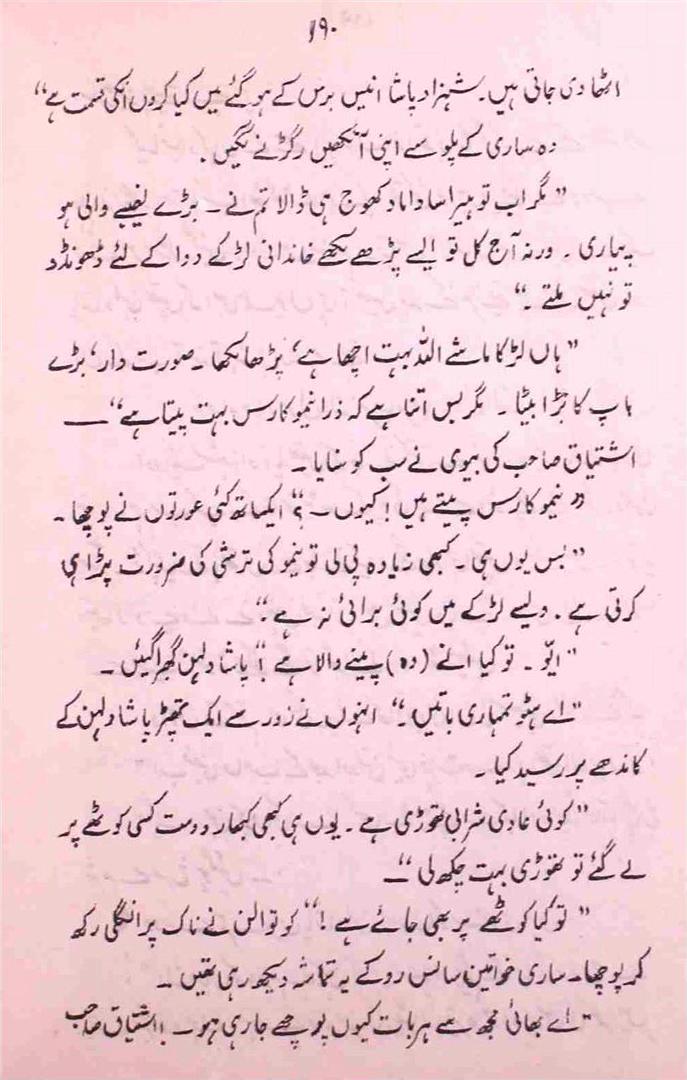 ۱۹۰
اٹھا دی جاتی ہیں۔ شہزاد پاشا انیس برس کے ہو گئے میں کیا کروں انکی قسمت ہے“
وہ ساری کے پلو سے اپنی آنکھیں رگڑنے لگیں۔
”مگر اب تو ہیرا سا داماد کھوج ہی ڈالا تم نے۔ بڑے نصیبے والی ہو
پیاری۔ ورنہ آج کل تو ایسے پڑھے لکھے خاندانی لڑکے دوا کے لئے ڈھونڈو
تو نہیں ملتے۔“
”ہاں لڑکا ماشے اللہ بہت اچھا ہے، پڑھا لکھا۔ صورت دار، بڑے
باپ کا بڑا بیٹا۔ مگر بس اتنا ہے کہ ذرا نیمو کا رس بہت پیتا ہے“ ——
اشتیاق صاحب کی بیوی نے سب کو سنایا۔
”نیمو کا رس پیتے ہیں! کیوں —؟“ ایکساتھ کئی عورتوں نے پوچھا۔
”بس یوں ہی۔ کبھی زیادہ پی لی تو نیمو کی ترشی کی ضرورت پڑا ہی
کرتی ہے۔ ویسے لڑکے میں کوئی برائی نہ ہے۔“
”ایّو۔ تو کیا انے (وہ) پینے والا ہے!“ پاشا دلہن گھبرا گئیں۔
”اے ہٹو تمہاری باتیں۔“ انہوں نے زور سے ایک تھپڑ پاشا دلہن کے
کاندھے پر رسید کیا۔
”کوئی عادی شرابی تھوڑی ہے۔ یوں ہی کبھی کبھار دوست کسی کوٹھے پر
لے گئے تو تھوڑی بہت چکھ لی“ —
”تو کیا کوٹھے پر بھی جائے ہے!“ کوتوالن نے ناک پر انگلی رکھ
کر پوچھا۔ ساری خواتین سانس روکے یہ تماشہ دیکھ رہی تھیں۔
”اے بھائی مجھ سے ہر بات کیوں پوچھے جا رہی ہو۔ اشتیاق صاحب